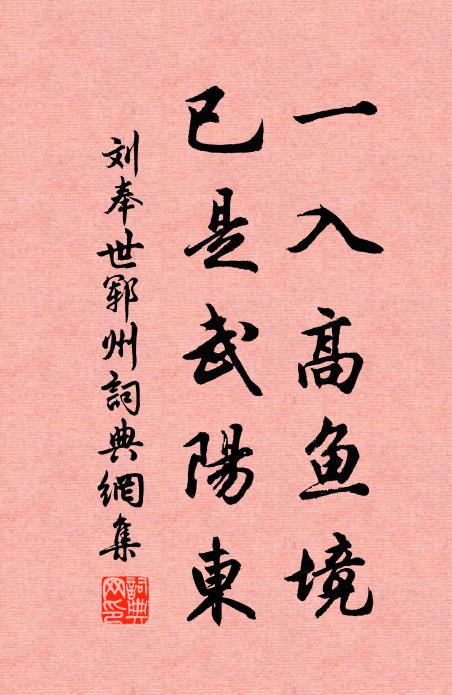 一入高鱼境
已是武陽東
刘奉世郓州詞典網集
詞典网印